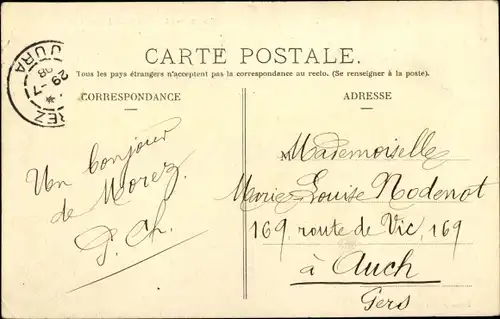 CARTE POSTALE.
Tous les pays étrangers n'acceptent pas la correspondance au recto. (Se renseigner à la poste).
CORRESPONDANCE
ADRESSE
JURA
29-7
08
REZ
Un bonjour
de Morez
P. Ch.
Mademoiselle
Marie Louise Nodenot
169, route de Vic, 169
à Auch
Gers